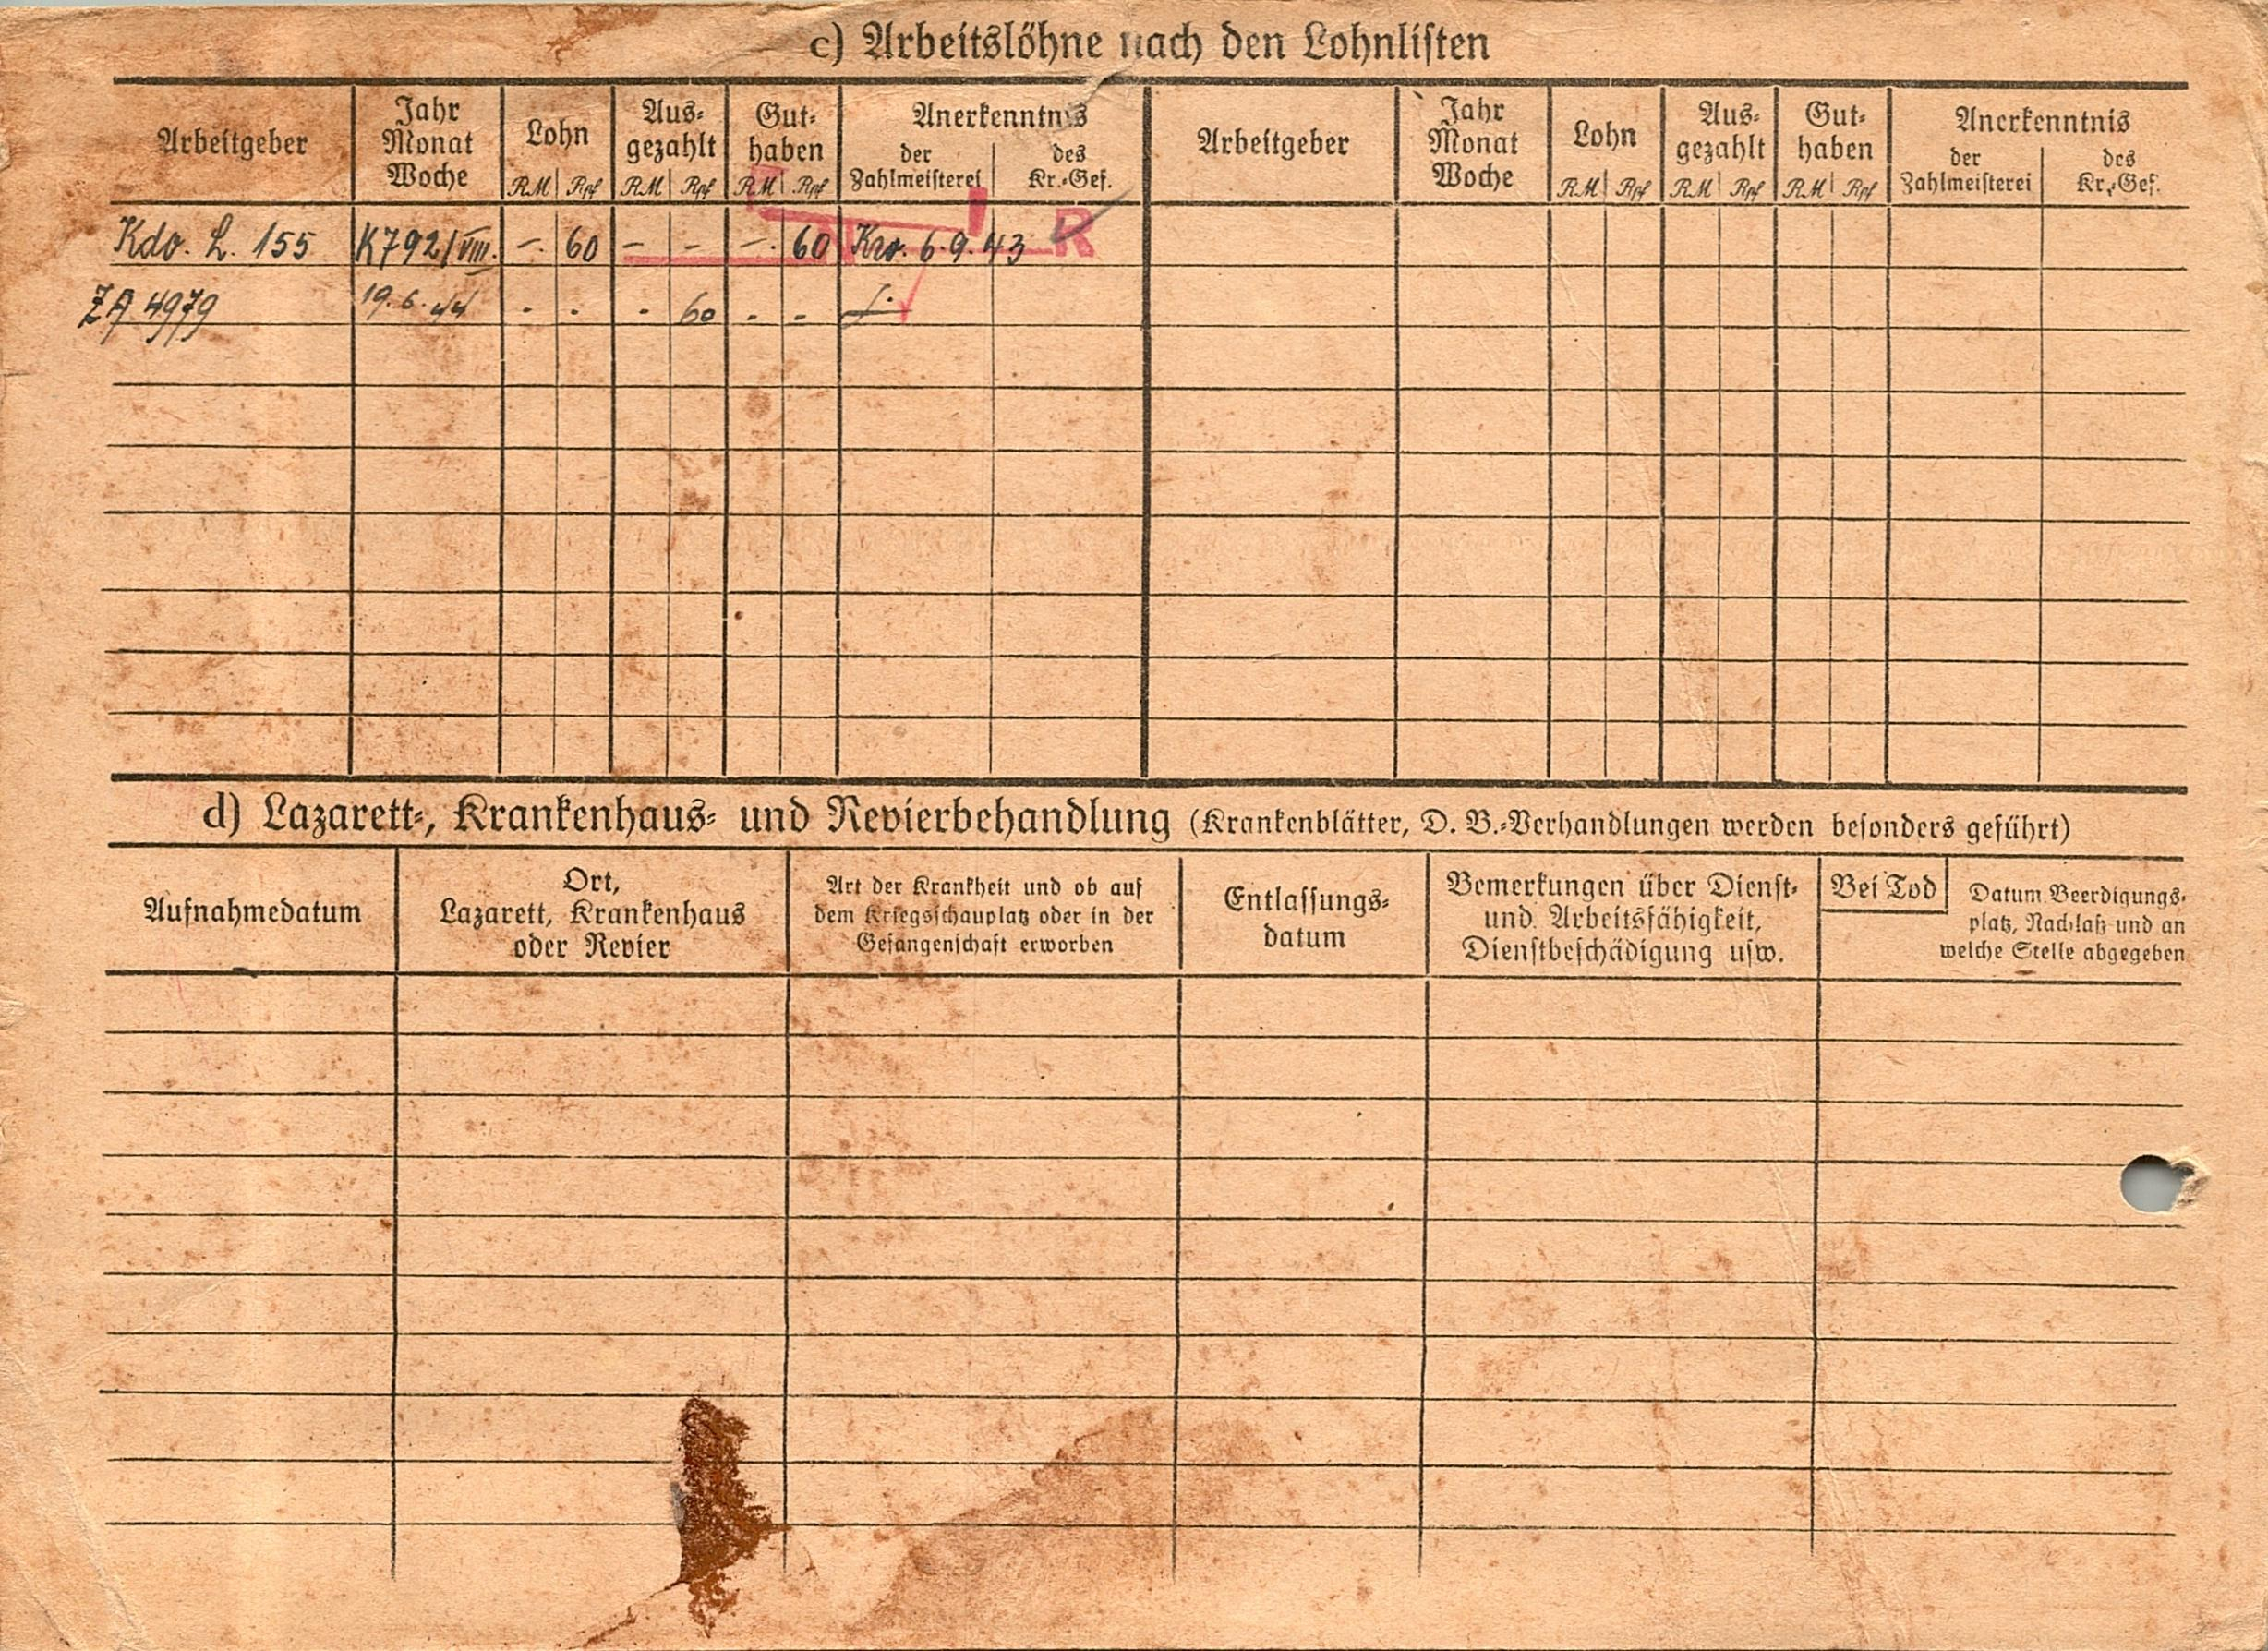 c) Arbeitslöhne nach den Lohnlisten
Arbeitgeber Jahr Monat Woche Lohn RM Rpf Aus- gezahlt RM Rpf Gut- haben RM Rpf Anerkenntnis der Zahlmeisterei des Kr.-Gef. Arbeitgeber Jahr Monat Woche Lohn RM Rpf Aus- gezahlt RM Rpf Gut- haben RM Rpf Anerkenntnis der Zahlmeisterei des Kr.-Gef.
Kdo. L. 155 K792/VIII. -. 60 - - -. 60 6.9.43 R
ZA 4979 19.6.44 - - - 60 - -
d) Lazarett-, Krankenhaus- und Revierbehandlung (Krankenblätter, D. B.-Verhandlungen werden besonders geführt)
Aufnahmedatum
Ort,
Lazarett, Krankenhaus
oder Revier
Art der Krankheit und ob auf
dem Kriegsschauplatz oder in der
Gefangenschaft erworben
Entlassungs-
datum
Bemerkungen über Dienst-
und Arbeitsfähigkeit,
Dienstbeschädigung usw.
Bei Tod
Datum Beerdigungs-
platz, Nachlaß und an
welche Stelle abgegeben